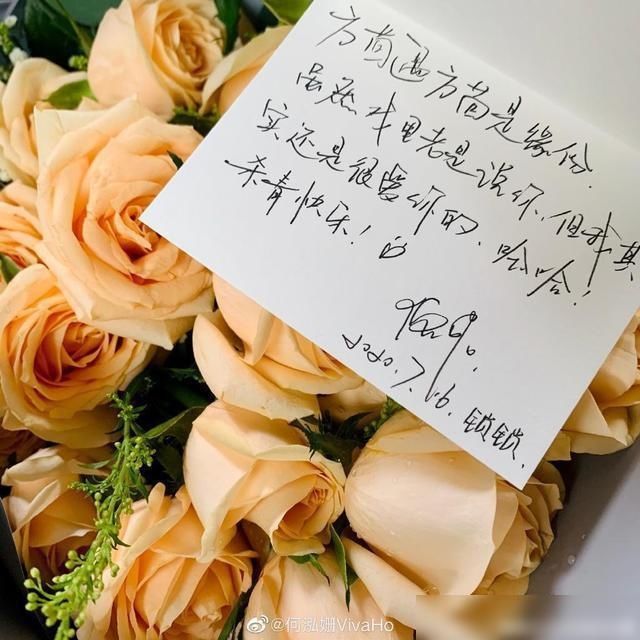 方茴遇方茴是缘份.
虽然戏里老是说你、但我其
实还是很爱你的、哈哈!
杀青快乐!
2020.7.16. 锁锁.
@何泓姗VivaHo